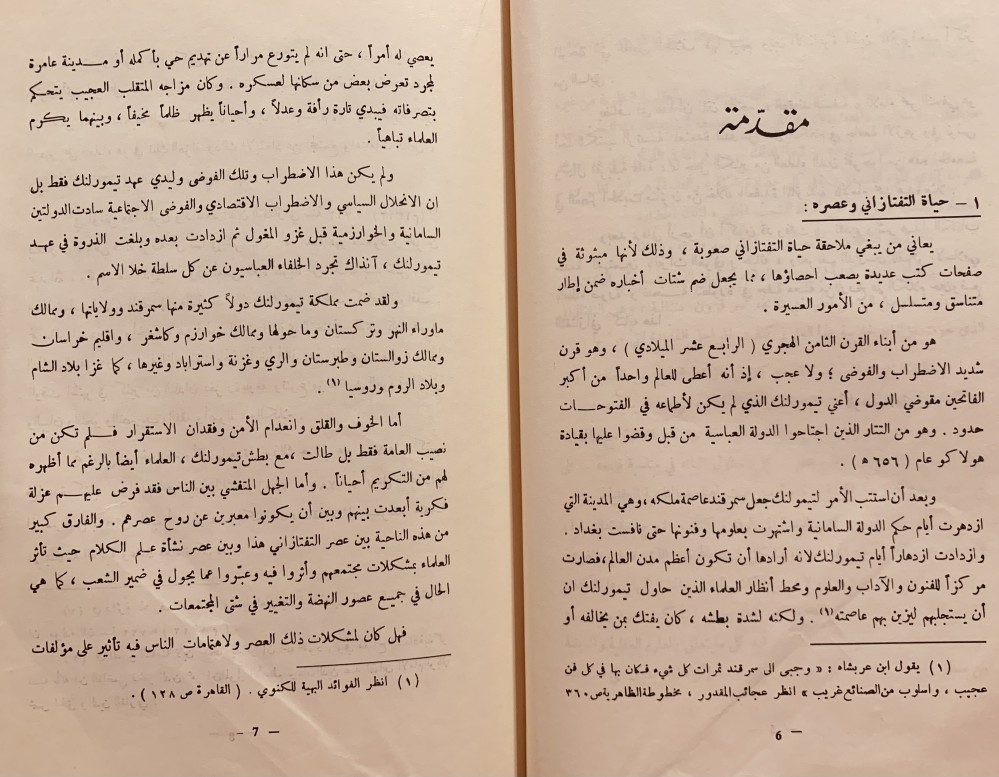 مقدّمة
١ – حياة التفتازاني وعصره :
يعاني من يبغي ملاحقة حياة التفتازاني صعوبة ، وذلك لأنها مبثوثة في
صفحات كتب عديدة يصعب احصاؤها ، مما يجعل ضم شتات أخباره ضمن إطار
متناسق ومتسلسل ، من الأمور العسيرة .
هو من أبناء القرن الثامن الهجري ( الرابع عشر الميلادي ) ، وهو قرن
شديد الاضطراب والفوضى ؛ ولا عجب ، إذ أنه أعطى للعالم واحداً من أكبر
الفاتحين مقوضي الدول ، أعني تيمورلنك الذي لم يكن لأطماعه في الفتوحات
حدود . وهو من التتار الذين اجتاحوا الدولة العباسية من قبل وقضوا عليها بقيادة
هولاكو عام ( ٦٥٦ ه ) .
وبعد أن استتب الأمر لتيمولنك جعل سمرقند عاصمة ملكه ، وهي المدينة التي
ازدهرت أيام حكم الدولة السامانية واشتهرت بعلومها وفنونها حتى نافست بغداد .
وازدادت ازدهاراً أيام تيمورلنك لانه أرادها أن تكون أعظم مدن العالم ، فصارت
مركزاً للفنون والآداب والعلوم ومحط أنظار العلماء الذين حاول تيمورلنك ان
أن يستجلبهم ليزين بهم عاصمته (١) . ولكنه لشدة بطشه ، كان يفتك بمن يخالفه أو
(١) يقول ابن عربشاه : « وجبى الى سمرقند ثمرات كل شيء فكان بها في كل فن
عجيب ، واسلوب من الصنائع غريب » انظر عجائب المقدور ، مخطوطة الظاهرية ص ٣٦٠
6 –
يعصي له أمراً ، حتى انه لم يتورع مراراً عن تهديم حي بأكمله أو مدينة عامرة
لمجرد تعرض بعض من سكانها لعسكره . وكان مزاجه المتقلب العجيب يتحكم
بتصرفاته فيبدي تارة رأفة وعدلاً ، وأحياناً يظهر ظلماً مخيفاً ، وبينهما يكرم
العلماء تباهياً .
ولم يكن هذا الاضطراب وتلك الفوضى وليدي عهد تيمورلنك فقط بل
ان الانحلال السياسي والاضطراب الاقتصادي والفوضى الاجتماعية سادت الدولتين
السامانية والخوارزمية قبل غزو المغول ثم ازدادت بعده وبلغت الذروة في عهد
تيمورلنك ، آنذاك تجرد الخلفاء العباسيون عن كل سلطة خلا الاسم .
ولقد ضمت مملكة تيمورلنك دولاً كثيرة منها سمرقند وولاياتها ، وممالك
ماوراء النهر وتركستان وما حولها وممالك خوارزم وكاشغر ، واقليم خراسان
وممالك زوالستان وطبرستان والري وغزنة واستراباد وغيرها ، كما غزا بلاد الشام
وبلاد الروم وروسيا (١) .
أما الخوف والقلق وانعدام الأمن وفقدان الاستقرار فلم تكن من
نصيب العامة فقط بل طالت ،مع بطش تيمورلنك ، العلماء أيضاً بالرغم مما أظهره
لهم من التكريم أحياناً . وأما الجهل المتفشي بين الناس فقد فرض عليهم عزلة
فكرية أبعدت بينهم وبين أن يكونوا معبرين عن روح عصرهم . والفارق كبير
من هذه الناحية بين عصر التفتازاني هذا وبين عصر نشأة علم الكلام حيث تأثر
العلماء بمشكلات مجتمعهم وأثروا فيه وعبّروا عما يجول في ضمير الشعب ، كما هي
الحال في جميع عصور النهضة والتغيير في شتى المجتمعات .
فهل كان لمشكلات ذلك العصر ولاهتمامات الناس فيه تأثير على مؤلفات
(١) انظر الفوائد البهية للكنوي . ( القاهرة ص ١٢٨ ) .
– 7 –